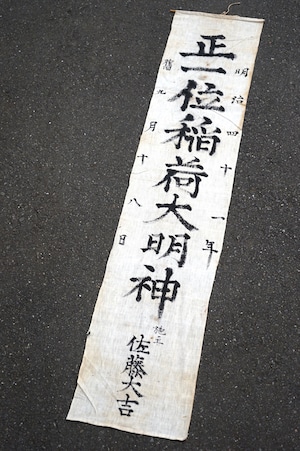 明治四十一年
正一位稲荷大明神
舊九月十八日
施主
佐藤大吉